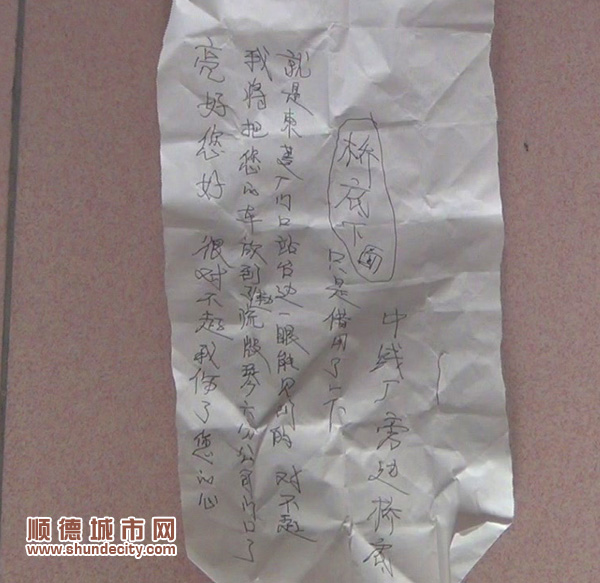 亮好您好 很对不起我伤了您的心
我将把您的车放到了琴公司门口了
就是東菱厂门口站台边一眼能见到的 对不起
桥底下面 只是借用了一下
中线厂旁边桥底
顺德城市网
www.shundecity.com